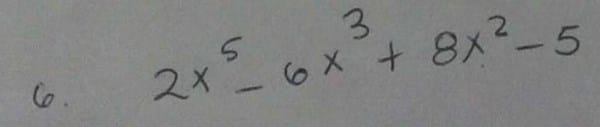 6. 2x⁵ - 6x³ + 8x² - 5